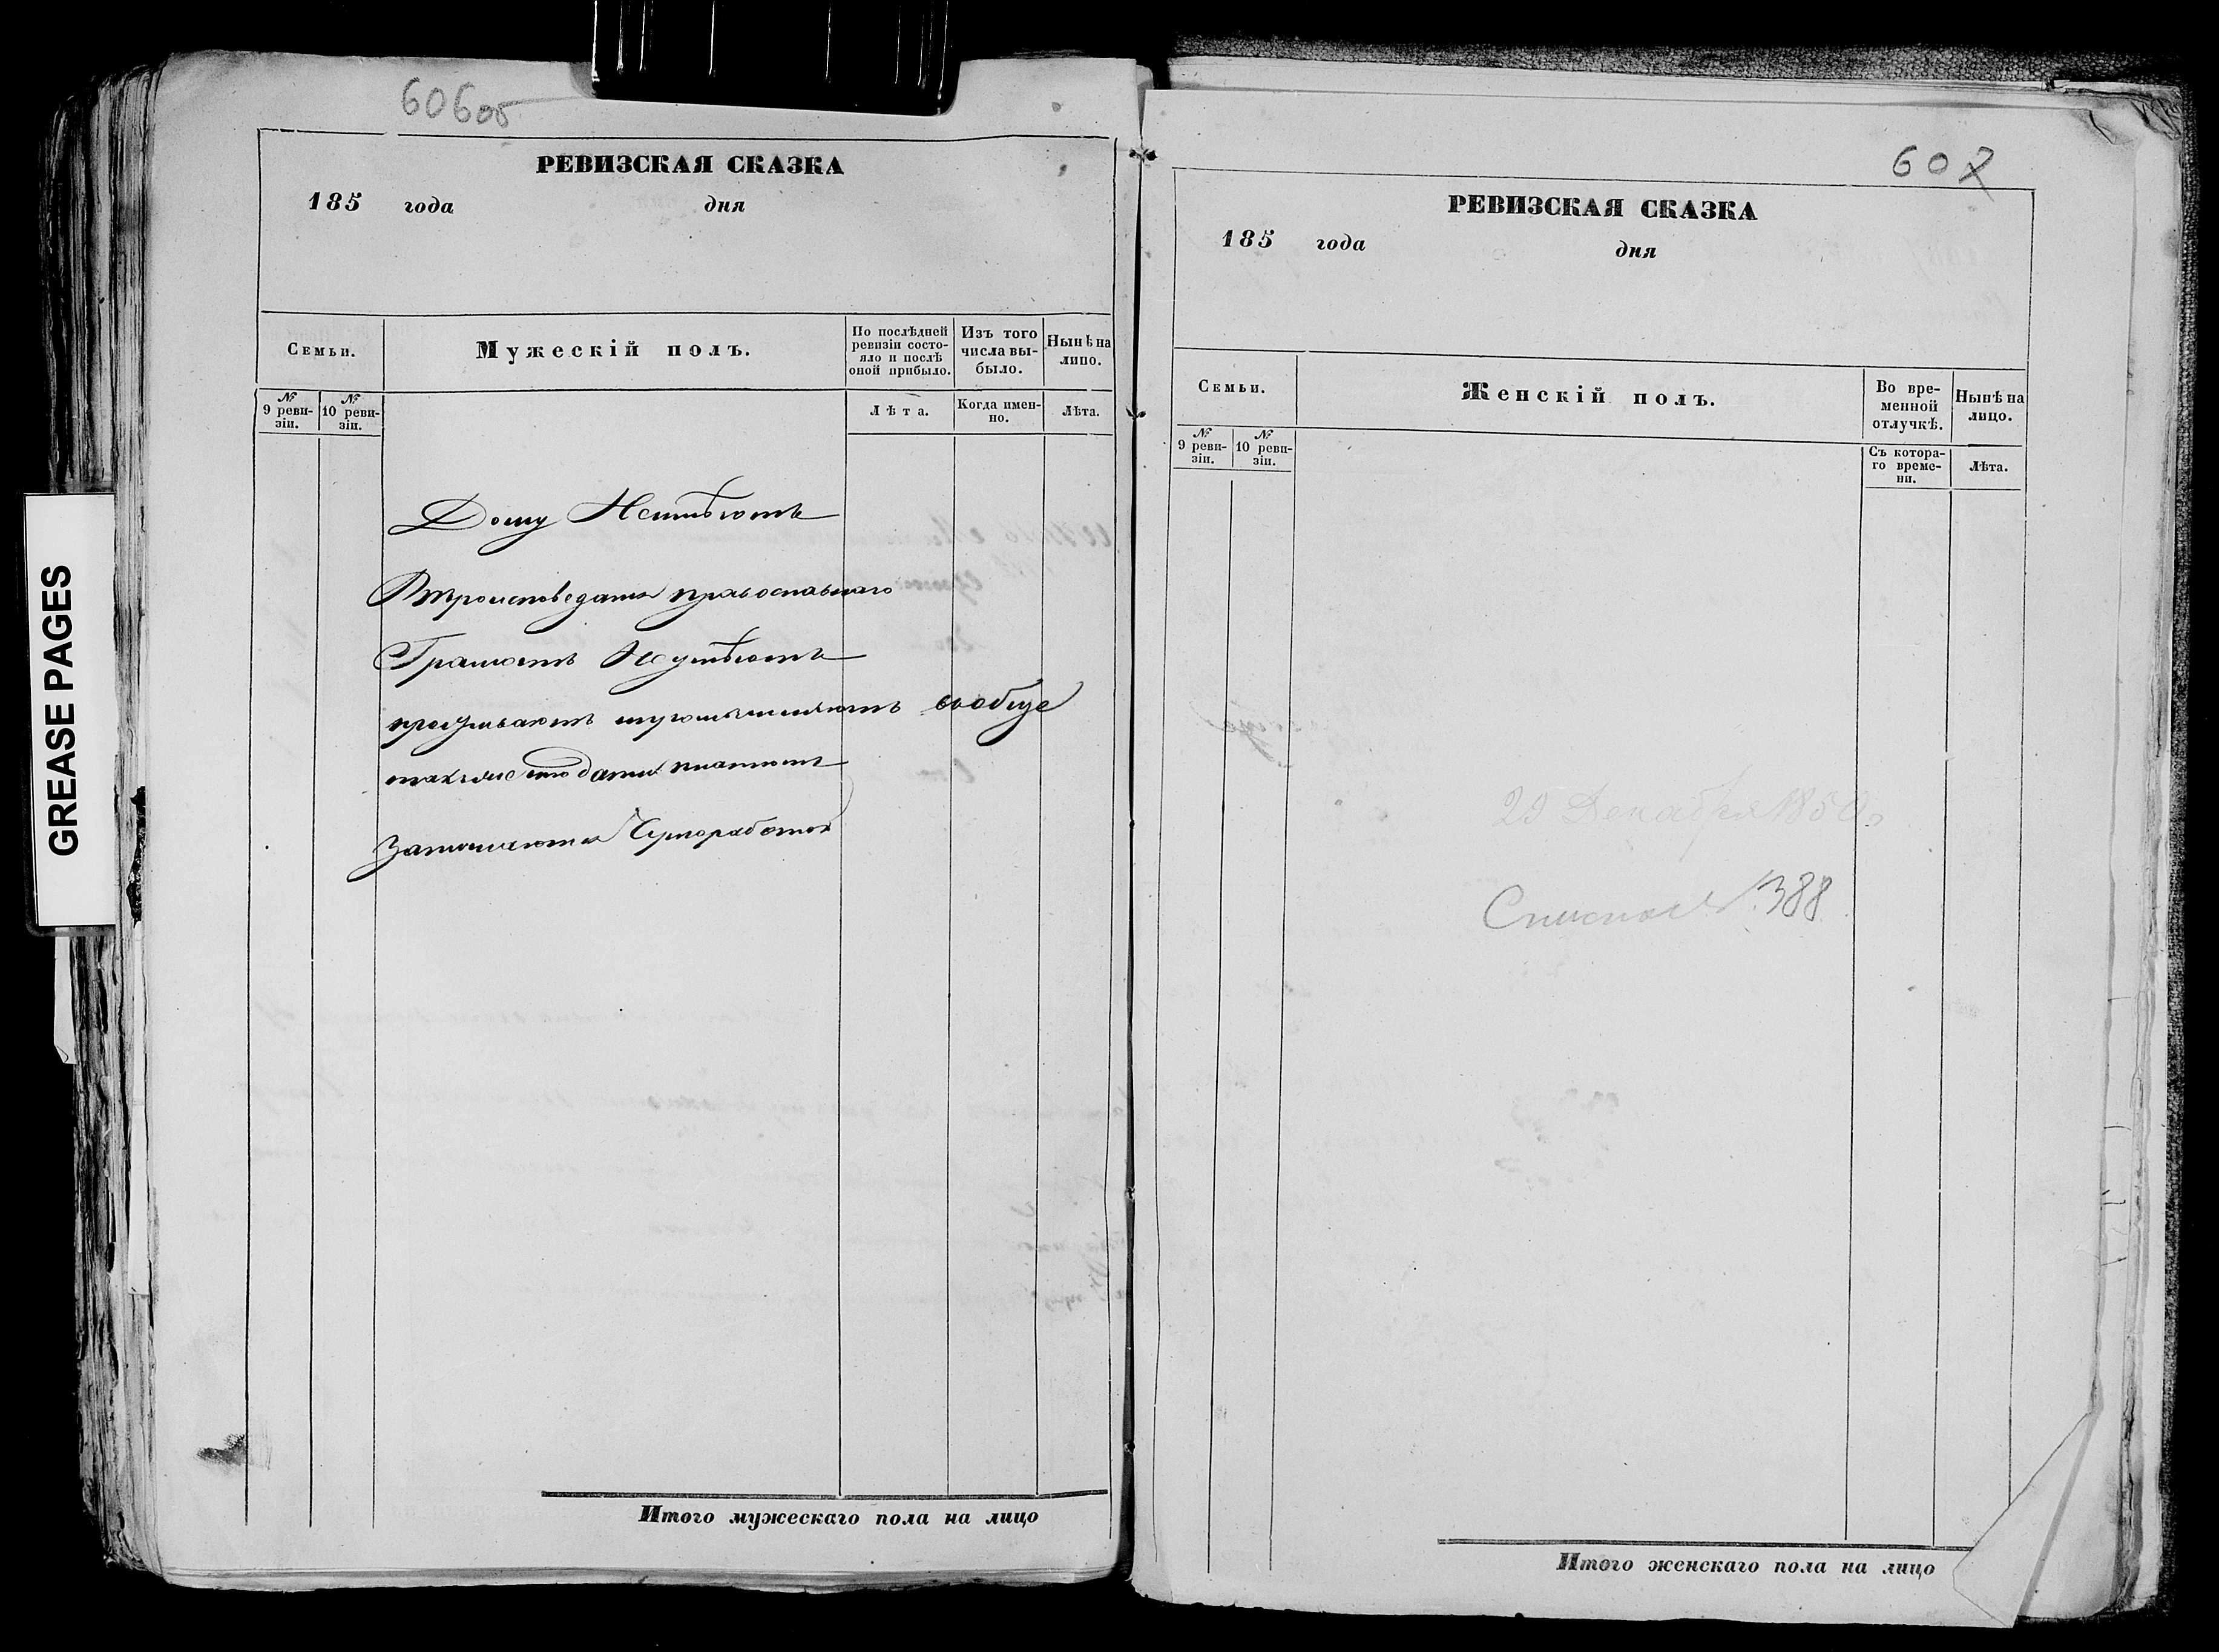 606об
РЕВИЗСКАЯ СКАЗКА
185 года дня
Семьи.
Мужескій полъ.
По послѣдней ревизіи состояло и послѣ оной прибыло.
Изъ того числа выбыло.
Нынѣ на лицо.
№ 9 ревизіи.
№ 10 ревизіи.
Лѣта.
Когда именно.
Лѣта.
Дому Неимѣютъ
Вѣроисповеданія православнаго
Грамотѣ Неумѣютъ
проживаютъ вообще
также подати платютъ
Занимаются Чернорабочей
Итого мужескаго пола на лицо
GREASE PAGES
607
РЕВИЗСКАЯ СКАЗКА
185 года дня
Семьи.
Женскій полъ.
Во временной отлучкѣ.
Нынѣ на лицо.
№ 9 ревизіи.
№ 10 ревизіи.
Съ котораго времени.
Лѣта.
Декабря
№ 388
Итого женскаго пола на лицо